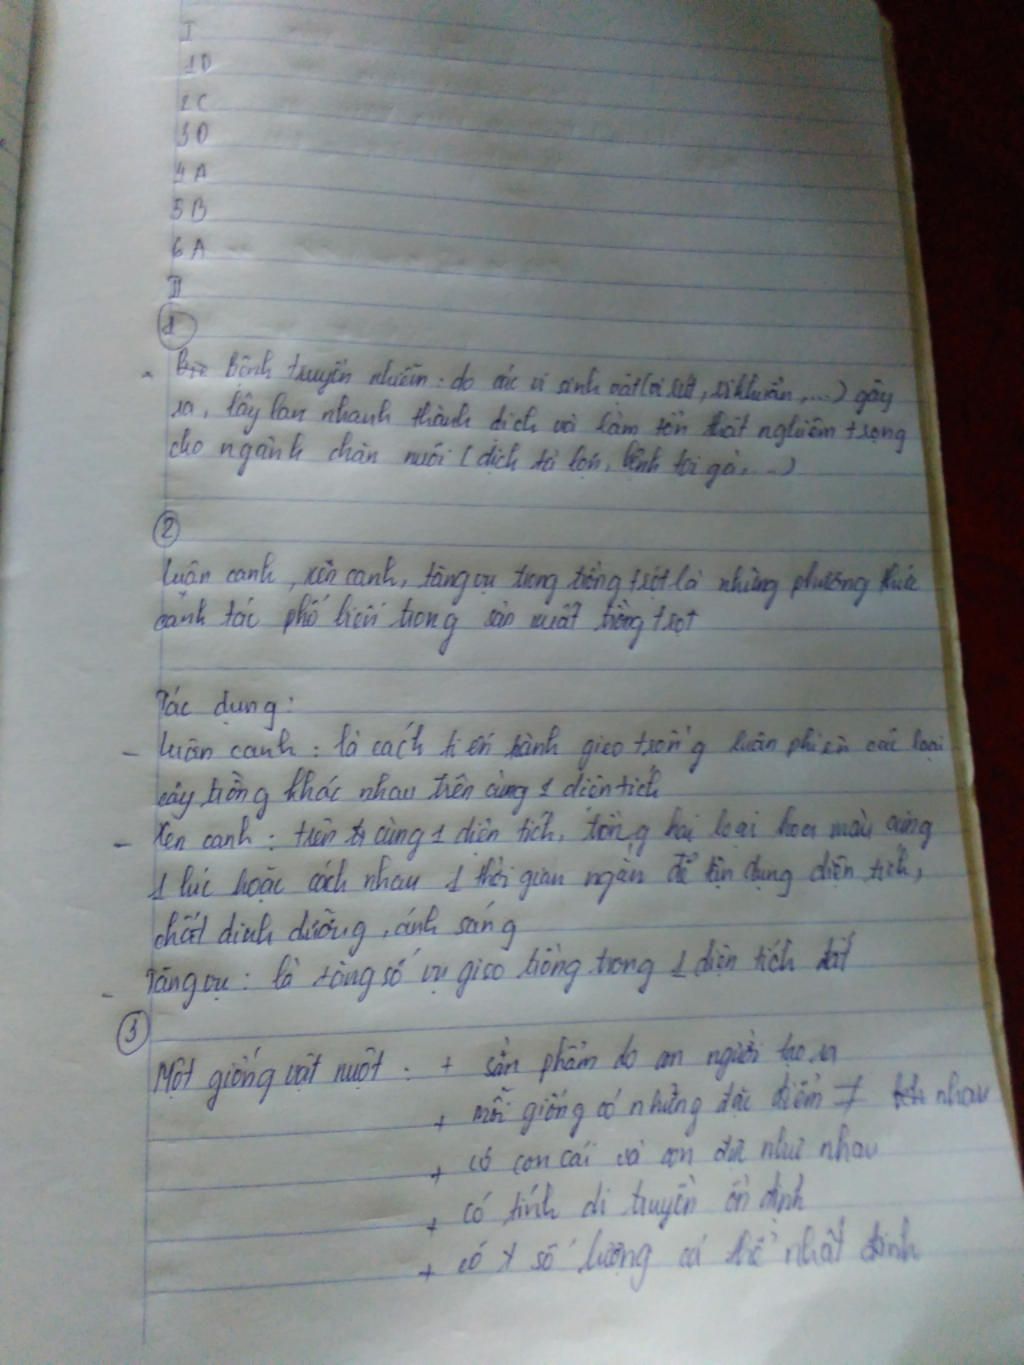 I
1D
2C
3D
4A
5B
6A
II
1
- Bệnh truyền nhiễm: do các vi sinh vật (vi rút, vi khuẩn, ...) gây
ra, lây lan nhanh thành dịch và làm tổn thất nghiêm trọng
cho ngành chăn nuôi (dịch tả lợn, bệnh toi gà, ...)
2
Luân canh, xen canh, tăng vụ trong trồng trọt là những phương thức
canh tác phổ biến trong sản xuất trồng trọt
Tác dụng:
- Luân canh: là cách tiến hành gieo trồng luân phiên các loại
cây trồng khác nhau trên cùng 1 diện tích
- Xen canh: trên cùng 1 diện tích, trồng hai loại hoa màu cùng
1 lúc hoặc cách nhau 1 thời gian ngắn để tận dụng diện tích,
chất dinh dưỡng, ánh sáng
- Tăng vụ: là tăng số vụ gieo trồng trong 1 diện tích đất
3
Một giống vật nuôi: + sản phẩm do con người tạo ra
+ mỗi giống có những đặc điểm ≠ nhau
+ có con cái và con đực như nhau
+ có tính di truyền ổn định
+ có số lượng cá thể nhất định